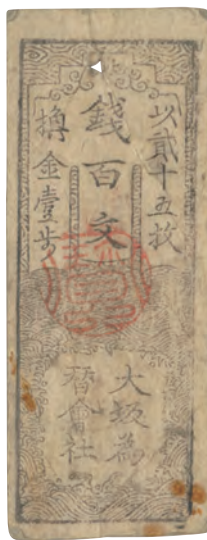 以貳十五枚
錢百文
換金壹歩
大坂為
替會社